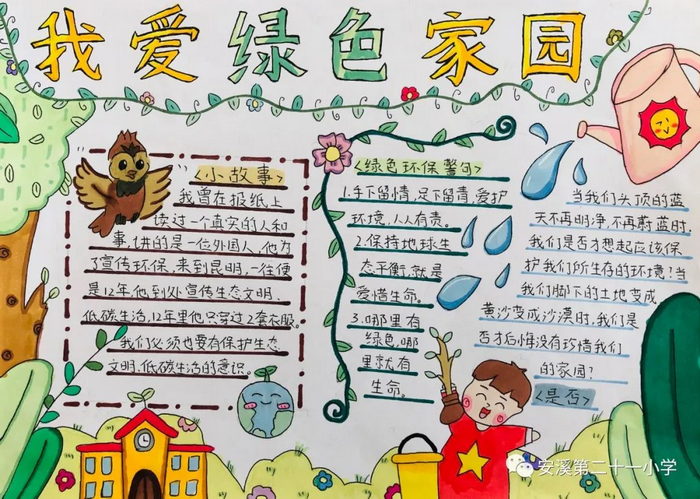 我爱绿色家园
<小故事>
我曾在报纸上
读过一个真实的人和
事,讲的是一位外国人,他为
了宣传环保,来到昆明,一往便
是12年,他到处宣传生态文明,
低碳生活,12年里他只穿过2套衣服。
我们必须也要有保护生态
文明,低碳生活的意识。
<绿色环保警句>
1.手下留情,足下留青,爱护
环境,人人有责。
2.保持地球生
态平衡,就是
爱惜生命。
3.哪里有
绿色,哪
里就有
生命。
当我们头顶的蓝
天不再明净,不再蔚蓝时,
我们是否才想起应该保
护我们所生存的环境?当
我们脚下的土地变成
黄沙变成沙漠时,我们是
否才后悔没有珍惜我们
的家园?
<是否>
安溪第二十一小学